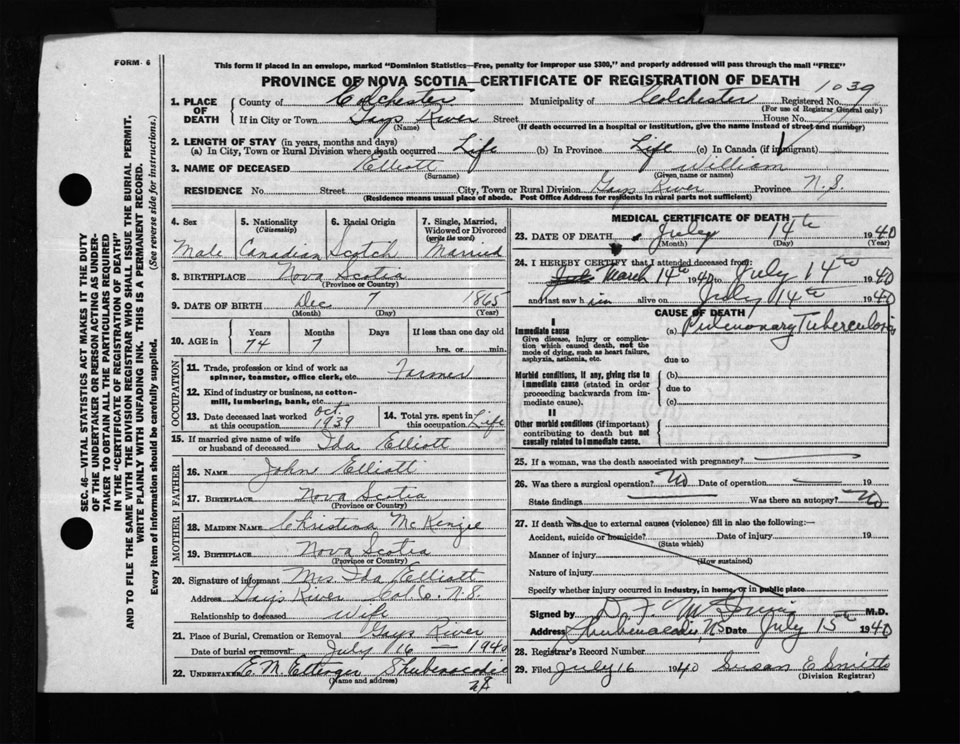 FORM 6
This form if placed in an envelope, marked "Dominion Statistics—Free, penalty for improper use $300," and properly addressed will pass through the mail "FREE"
PROVINCE OF NOVA SCOTIA—CERTIFICATE OF REGISTRATION OF DEATH
1039
1. PLACE OF DEATH County of Colchester Municipality of Colchester Registered No.
(For use of Registrar General only)
If in City or Town Gays River Street House No.
(Name) (If death occurred in a hospital or institution, give the name instead of street and number)
2. LENGTH OF STAY (in years, months and days)
(a) In City, Town or Rural Division where death occurred Life (b) In Province Life (c) In Canada (if immigrant)
3. NAME OF DECEASED Elliott William
(Surname) (Given name or names)
RESIDENCE No. Street City, Town or Rural Division Gays River Province N.S.
(Residence means usual place of abode. Post Office Address for residents in rural parts not sufficient)
4. Sex Male
5. Nationality (Citizenship) Canadian
6. Racial Origin Scotch
7. Single, Married, Widowed or Divorced (write the word) Married
8. BIRTHPLACE Nova Scotia
(Province or Country)
9. DATE OF BIRTH Dec 7 1865
(Month) (Day) (Year)
10. AGE in Years 74 Months 7 Days If less than one day old hrs. or min.
OCCUPATION
11. Trade, profession or kind of work as spinner, teamster, office clerk, etc. Farmer
12. Kind of industry or business, as cotton-mill, lumbering, bank, etc.
13. Date deceased last worked at this occupation Oct. 1939
14. Total yrs. spent in this occupation Life
15. If married give name of wife or husband of deceased Ida Elliott
FATHER
16. NAME John Elliott
17. BIRTHPLACE Nova Scotia
(Province or Country)
MOTHER
18. MAIDEN NAME Christina McKenzie
19. BIRTHPLACE Nova Scotia
(Province or Country)
20. Signature of informant Mrs Ida Elliott
Address Gays River Col Co. N.S.
Relationship to deceased Wife
21. Place of Burial, Cremation or Removal Gays River
Date of burial or removal July 16 — 1940
22. UNDERTAKER E. M. Ettinger Shubenacadie
(Name and address)
MEDICAL CERTIFICATE OF DEATH
23. DATE OF DEATH July 14th 1940
(Month) (Day) (Year)
24. I HEREBY CERTIFY that I attended deceased from:
March 14th 1940 to July 14th 1940
and last saw him alive on July 14th 1940
CAUSE OF DEATH
I
Immediate cause (a) Pulmonary Tuberculosis
Give disease, injury or complication which caused death, not the mode of dying, such as heart failure, asphyxia, asthenia, etc.
due to
Morbid conditions, if any, giving rise to immediate cause (stated in order proceeding backwards from immediate cause).
(b)
due to
(c)
II
Other morbid conditions (if important) contributing to death but not causally related to immediate cause.
25. If a woman, was the death associated with pregnancy?
26. Was there a surgical operation? No Date of operation 19
State findings Was there an autopsy? No
27. If death was due to external causes (violence) fill in also the following:—
Accident, suicide or homicide? Date of injury 19
(State which)
Manner of injury
(How sustained)
Nature of injury
Specify whether injury occurred in Industry, in home, or in public place
Signed by M.D.
Address Shubenacadie, NS Date July 15th 1940
28. Registrar's Record Number
29. Filed July 16 1940 Susan E Smith
(Division Registrar)
SEC. 46—VITAL STATISTICS ACT MAKES IT THE DUTY
OF THE UNDERTAKER OR PERSON ACTING AS UNDER-
TAKER TO OBTAIN ALL THE PARTICULARS REQUIRED
IN THE "CERTIFICATE OF REGISTRATION OF DEATH"
AND TO FILE THE SAME WITH THE DIVISION REGISTRAR WHO SHALL ISSUE THE BURIAL PERMIT.
WRITE PLAINLY WITH UNFADING INK. THIS IS A PERMANENT RECORD.
Every item of Information should be carefully supplied. (See reverse side for instructions.)